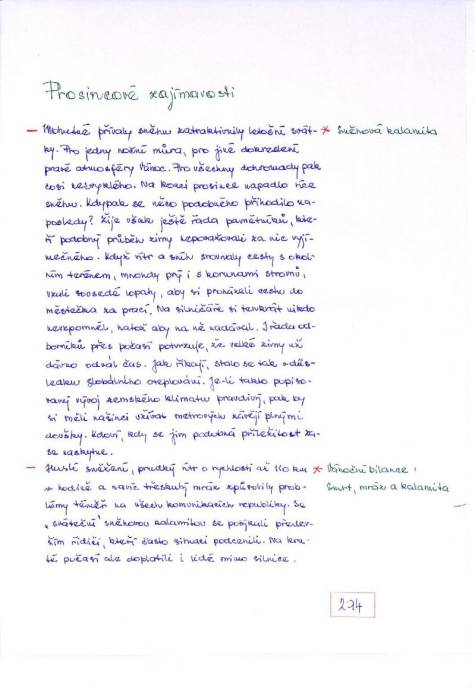 Prosincové zajímavosti
– Mohutné přívaly sněhu zatraktivnily letošní svát- * Sněhová kalamita
ky. Pro jedny noční můra, pro jiné dokreslení
pravé atmosféry Vánoc. Pro všechny dohromady pak
cosi nezvyklého. Na konci prosince napadlo více
sněhu. Kdypak se něco podobného přihodilo na-
posledy? Žije však ještě řada pamětníků, kte-
ří podobný průběh zimy nepovažovali za nic výji-
mečného. Když vítr a sníh srovnaly cesty s okol-
ním terénem, mnohdy prý i s korunami stromů,
vzali sousedé lopaty, aby si proházeli cestu do
městečka za prací. Na silničáře si tenkrát nikdo
nevzpomněl, natož aby na ně nadával. I řada od-
borníků přes počasí potvrzuje, že velké zimy už
dávno odvál čas. Jak říkají, stalo se tak v důs-
ledku globálního oteplování. Je-li takto popiso-
vaný vývoj zemského klimatu pravdivý, pak by
si měli našinci užívat metrových závějí plnými
doušky. Kdoví, kdy se jim podobná příležitost za-
se naskytne.
– Husté sněžení, prudký vítr o rychlosti až 110 km * Vánoční bilance:
v hodině a navíc třeskutý mráz způsobily prob- Smrt, mráz a kalamita
lémy téměř na všech komunikacích republiky. Se
„sváteční" sněhovou kalamitou se potýkali přede-
vším řidiči, kteří často situaci podcenili. Na kru-
té počasí ale doplatili i lidé mimo silnice.
274